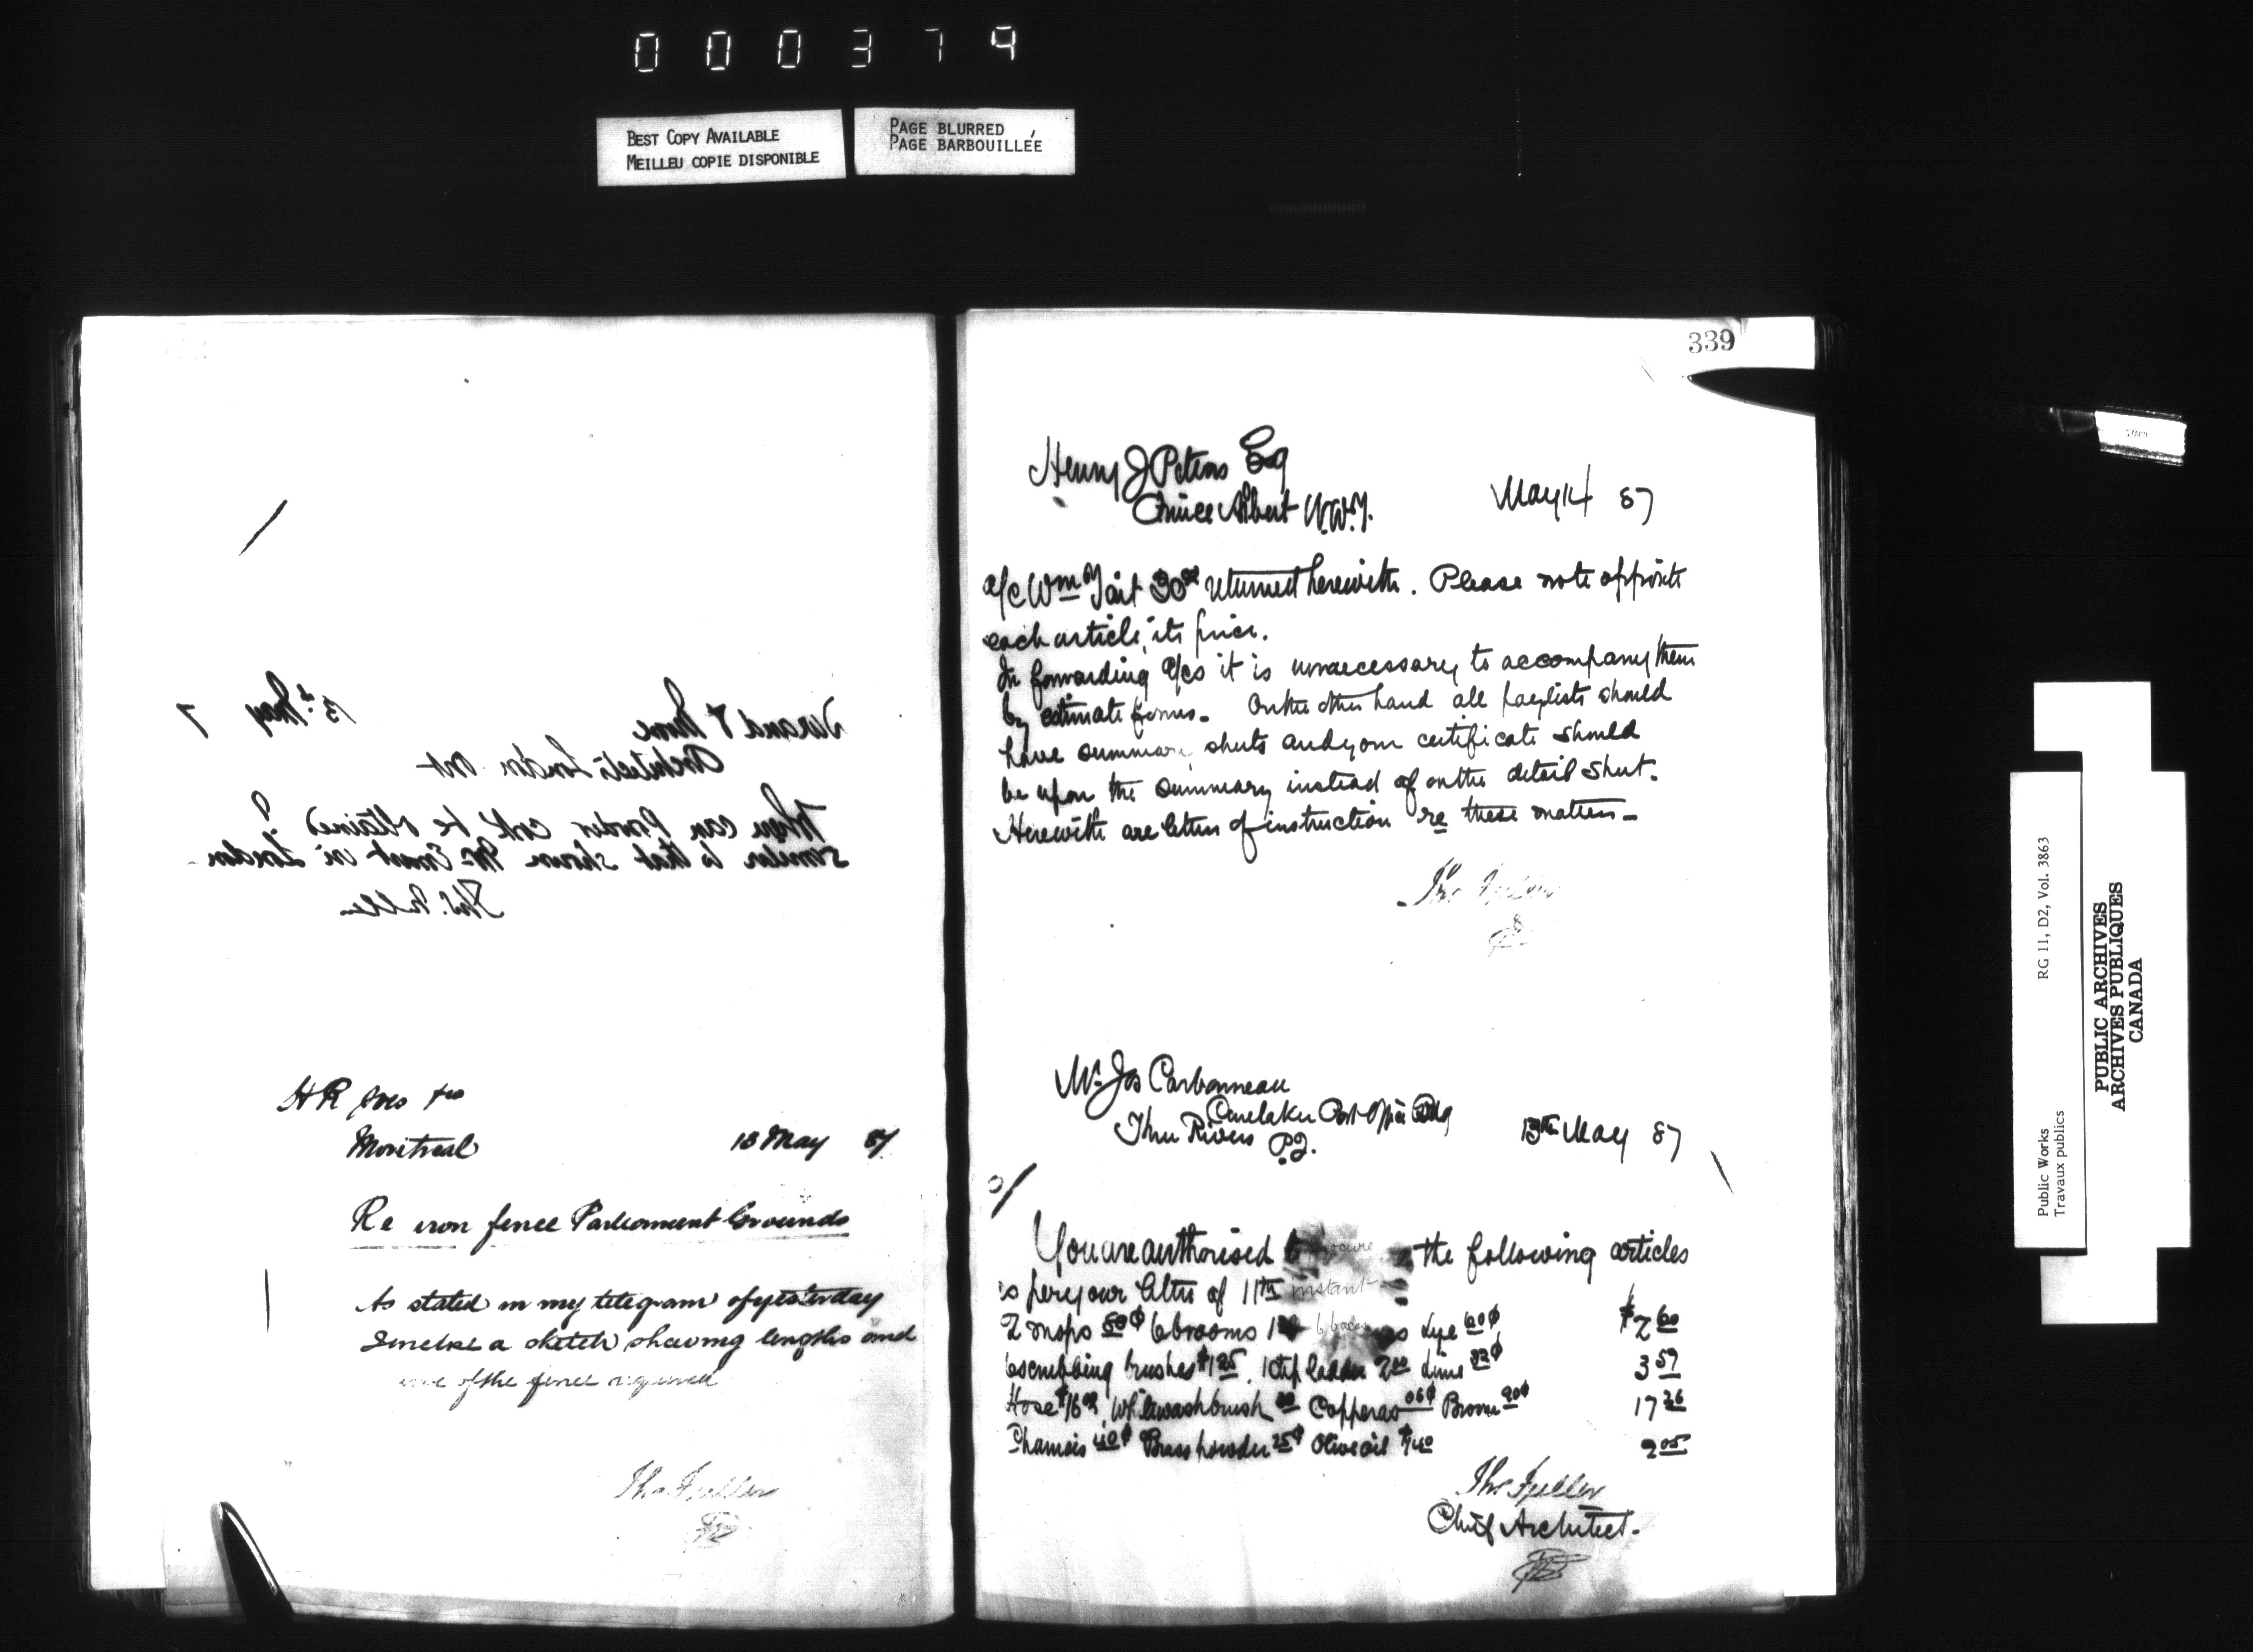 000379
BEST COPY AVAILABLE
MEILLEU COPIE DISPONIBLE
PAGE BLURRED
PAGE BARBOUILLÉE
13th May 7
Architects London Ont
When can border cost be obtained ?
similar to that shown Mr Ewart in London
Thos. Fuller
H R Ives & Co
Montreal
13 May 87
Re iron fence Parliament Grounds
As stated in my telegram of yesterday
I enclose a sketch showing lengths and
of the fence required
Thos Fuller
339
Henry J Peters Esq
Prince Albert N.W.T.
May 14 87
a/c Wm Tait returned herewith. Please note opposite
each article, its price.
In forwarding a/cs it is unnecessary to accompany them
by estimate forms. On the other hand all paylists should
have summary sheets and your certificate should
be upon the summary instead of on the detail sheet.
Herewith are letters of instruction re these matters -
Thos Fuller
Mr Jos Carbonneau
Caretaker Post Office Bldg
Three Rivers P.Q.
13th May 87
You are authorised to procure the following articles
as per your letter of 11th instant
2 mops 50¢ 6 brooms 6 boxes lye 60¢ $2 60
6 scrubbing brushes $1 25. 1 step ladder 2 00 Lime 32¢ 3 57
Hose $16 00 Whitewash brush Copperas 06¢ Broom 90¢ 17 26
Chamois 40¢ Brass powder 25¢ Olive oil $1 40 2 05
Thos Fuller
Chief Architect.
Public Works
Travaux publics
RG 11, D2, Vol. 3863
PUBLIC ARCHIVES
ARCHIVES PUBLIQUES
CANADA